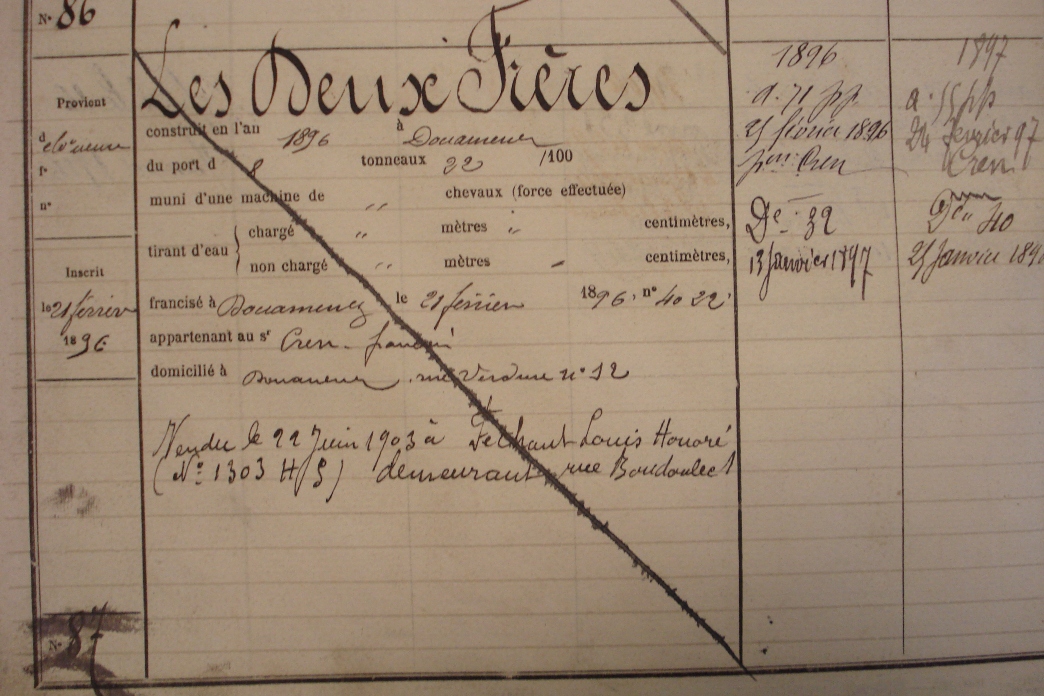 N° 86
Les Deux Frères
Provient
d
f°
n°
Inscrit
le 21 février
1896
construit en l'an 1896 à Douarnenez
du port d 8 tonneaux 22 /100
muni d'une machine de " chevaux (force effectuée)
tirant d'eau { chargé " mètres " centimètres,
non chargé " mètres " centimètres,
francisé à Douarnenez le 21 février 1896. n° 4022
appartenant au sr Cren
domicilié à Douarnenez, rue n° 12
Vendu le 22 Juin 1903 à Louis Honoré
(N° 1303 H/S) demeurant rue
1896
février 1896
Cren
De 39
13 Janvier 1897
1897
24 février 97
Cren
De 40
25 Janvier 189
N° 87